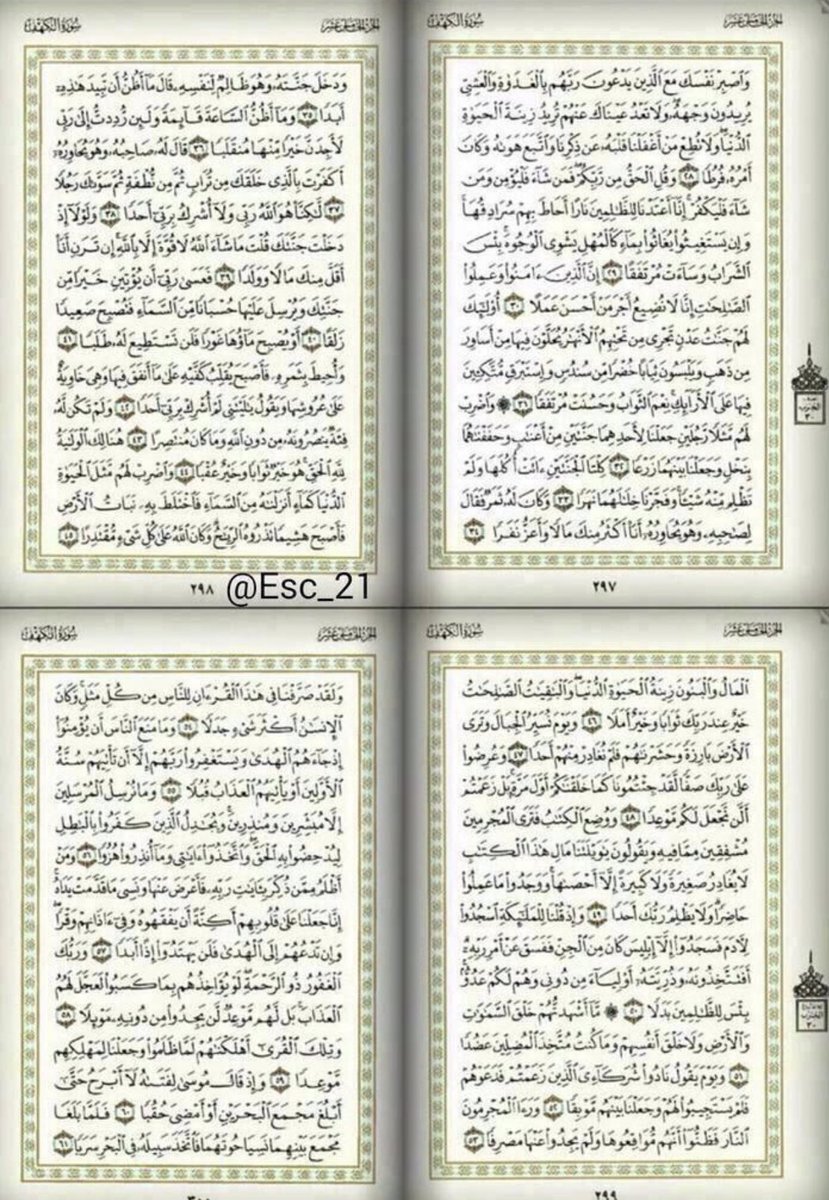 الجزء الخامس عشر
سورة الكهف
وَٱصْبِرْ نَفْسَكَ مَعَ ٱلَّذِينَ يَدْعُونَ رَبَّهُم بِٱلْغَدَوٰةِ وَٱلْعَشِىِّ
يُرِيدُونَ وَجْهَهُۥ وَلَا تَعْدُ عَيْنَاكَ عَنْهُمْ تُرِيدُ زِينَةَ ٱلْحَيَوٰةِ
ٱلدُّنْيَا وَلَا تُطِعْ مَنْ أَغْفَلْنَا قَلْبَهُۥ عَن ذِكْرِنَا وَٱتَّبَعَ هَوَىٰهُ وَكَانَ
أَمْرُهُۥ فُرُطًا ٢٨ وَقُلِ ٱلْحَقُّ مِن رَّبِّكُمْ فَمَن شَآءَ فَلْيُؤْمِن وَمَن
شَآءَ فَلْيَكْفُرْ إِنَّآ أَعْتَدْنَا لِلظَّٰلِمِينَ نَارًا أَحَاطَ بِهِمْ سُرَادِقُهَا
وَإِن يَسْتَغِيثُوا۟ يُغَاثُوا۟ بِمَآءٍ كَٱلْمُهْلِ يَشْوِى ٱلْوُجُوهَ بِئْسَ
ٱلشَّرَابُ وَسَآءَتْ مُرْتَفَقًا ٢٩ إِنَّ ٱلَّذِينَ ءَامَنُوا۟ وَعَمِلُوا۟
ٱلصَّٰلِحَٰتِ إِنَّا لَا نُضِيعُ أَجْرَ مَنْ أَحْسَنَ عَمَلًا ٣٠ أُو۟لَٰٓئِكَ
لَهُمْ جَنَّٰتُ عَدْنٍ تَجْرِى مِن تَحْتِهِمُ ٱلْأَنْهَٰرُ يُحَلَّوْنَ فِيهَا مِنْ أَسَاوِرَ
مِن ذَهَبٍ وَيَلْبَسُونَ ثِيَابًا خُضْرًا مِّن سُندُسٍ وَإِسْتَبْرَقٍ مُّتَّكِـِٔينَ
فِيهَا عَلَى ٱلْأَرَآئِكِ نِعْمَ ٱلثَّوَابُ وَحَسُنَتْ مُرْتَفَقًا ٣١ ۞ وَٱضْرِبْ
لَهُم مَّثَلًا رَّجُلَيْنِ جَعَلْنَا لِأَحَدِهِمَا جَنَّتَيْنِ مِنْ أَعْنَٰبٍ وَحَفَفْنَٰهُمَا
بِنَخْلٍ وَجَعَلْنَا بَيْنَهُمَا زَرْعًا ٣٢ كِلْتَا ٱلْجَنَّتَيْنِ ءَاتَتْ أُكُلَهَا وَلَمْ
تَظْلِم مِّنْهُ شَيْـًٔا وَفَجَّرْنَا خِلَٰلَهُمَا نَهَرًا ٣٣ وَكَانَ لَهُۥ ثَمَرٌ فَقَالَ
لِصَٰحِبِهِۦ وَهُوَ يُحَاوِرُهُۥٓ أَنَا۠ أَكْثَرُ مِنكَ مَالًا وَأَعَزُّ نَفَرًا ٣٤
الحزب ٣٠
٢٩٧
الجزء الخامس عشر
سورة الكهف
وَدَخَلَ جَنَّتَهُۥ وَهُوَ ظَالِمٌ لِّنَفْسِهِۦ قَالَ مَآ أَظُنُّ أَن تَبِيدَ هَٰذِهِۦٓ
أَبَدًا ٣٥ وَمَآ أَظُنُّ ٱلسَّاعَةَ قَآئِمَةً وَلَئِن رُّدِدتُّ إِلَىٰ رَبِّى
لَأَجِدَنَّ خَيْرًا مِّنْهَا مُنقَلَبًا ٣٦ قَالَ لَهُۥ صَاحِبُهُۥ وَهُوَ يُحَاوِرُهُۥٓ
أَكَفَرْتَ بِٱلَّذِى خَلَقَكَ مِن تُرَابٍ ثُمَّ مِن نُّطْفَةٍ ثُمَّ سَوَّىٰكَ رَجُلًا
٣٧ لَّٰكِنَّا۠ هُوَ ٱللَّهُ رَبِّى وَلَآ أُشْرِكُ بِرَبِّىٓ أَحَدًا ٣٨ وَلَوْلَآ إِذْ
دَخَلْتَ جَنَّتَكَ قُلْتَ مَا شَآءَ ٱللَّهُ لَا قُوَّةَ إِلَّا بِٱللَّهِ إِن تَرَنِ أَنَا۠
أَقَلَّ مِنكَ مَالًا وَوَلَدًا ٣٩ فَعَسَىٰ رَبِّىٓ أَن يُؤْتِيَنِ خَيْرًا مِّن
جَنَّتِكَ وَيُرْسِلَ عَلَيْهَا حُسْبَانًا مِّنَ ٱلسَّمَآءِ فَتُصْبِحَ صَعِيدًا
زَلَقًا ٤٠ أَوْ يُصْبِحَ مَآؤُهَا غَوْرًا فَلَن تَسْتَطِيعَ لَهُۥ طَلَبًا ٤١
وَأُحِيطَ بِثَمَرِهِۦ فَأَصْبَحَ يُقَلِّبُ كَفَّيْهِ عَلَىٰ مَآ أَنفَقَ فِيهَا وَهِىَ خَاوِيَةٌ
عَلَىٰ عُرُوشِهَا وَيَقُولُ يَٰلَيْتَنِى لَمْ أُشْرِكْ بِرَبِّىٓ أَحَدًا ٤٢ وَلَمْ تَكُن لَّهُۥ
فِئَةٌ يَنصُرُونَهُۥ مِن دُونِ ٱللَّهِ وَمَا كَانَ مُنتَصِرًا ٤٣ هُنَالِكَ ٱلْوَلَٰيَةُ
لِلَّهِ ٱلْحَقِّ هُوَ خَيْرٌ ثَوَابًا وَخَيْرٌ عُقْبًا ٤٤ وَٱضْرِبْ لَهُم مَّثَلَ ٱلْحَيَوٰةِ
ٱلدُّنْيَا كَمَآءٍ أَنزَلْنَٰهُ مِنَ ٱلسَّمَآءِ فَٱخْتَلَطَ بِهِۦ نَبَاتُ ٱلْأَرْضِ
فَأَصْبَحَ هَشِيمًا تَذْرُوهُ ٱلرِّيَٰحُ وَكَانَ ٱللَّهُ عَلَىٰ كُلِّ شَىْءٍ مُّقْتَدِرًا ٤٥
٢٩٨
@Esc_21
الجزء الخامس عشر
سورة الكهف
ٱلْمَالُ وَٱلْبَنُونَ زِينَةُ ٱلْحَيَوٰةِ ٱلدُّنْيَا وَٱلْبَٰقِيَٰتُ ٱلصَّٰلِحَٰتُ
خَيْرٌ عِندَ رَبِّكَ ثَوَابًا وَخَيْرٌ أَمَلًا ٤٦ وَيَوْمَ نُسَيِّرُ ٱلْجِبَالَ وَتَرَى
ٱلْأَرْضَ بَارِزَةً وَحَشَرْنَٰهُمْ فَلَمْ نُغَادِرْ مِنْهُمْ أَحَدًا ٤٧ وَعُرِضُوا۟
عَلَىٰ رَبِّكَ صَفًّا لَّقَدْ جِئْتُمُونَا كَمَا خَلَقْنَٰكُمْ أَوَّلَ مَرَّةٍۭ بَلْ زَعَمْتُمْ
أَلَّن نَّجْعَلَ لَكُم مَّوْعِدًا ٤٨ وَوُضِعَ ٱلْكِتَٰبُ فَتَرَى ٱلْمُجْرِمِينَ
مُشْفِقِينَ مِمَّا فِيهِ وَيَقُولُونَ يَٰوَيْلَتَنَا مَالِ هَٰذَا ٱلْكِتَٰبِ
لَا يُغَادِرُ صَغِيرَةً وَلَا كَبِيرَةً إِلَّآ أَحْصَىٰهَا وَوَجَدُوا۟ مَا عَمِلُوا۟
حَاضِرًا وَلَا يَظْلِمُ رَبُّكَ أَحَدًا ٤٩ وَإِذْ قُلْنَا لِلْمَلَٰٓئِكَةِ ٱسْجُدُوا۟
لِـَٔادَمَ فَسَجَدُوٓا۟ إِلَّآ إِبْلِيسَ كَانَ مِنَ ٱلْجِنِّ فَفَسَقَ عَنْ أَمْرِ رَبِّهِۦٓ
أَفَتَتَّخِذُونَهُۥ وَذُرِّيَّتَهُۥٓ أَوْلِيَآءَ مِن دُونِى وَهُمْ لَكُمْ عَدُوٌّۢ
بِئْسَ لِلظَّٰلِمِينَ بَدَلًا ٥٠ ۞ مَّآ أَشْهَدتُّهُمْ خَلْقَ ٱلسَّمَٰوَٰتِ
وَٱلْأَرْضِ وَلَا خَلْقَ أَنفُسِهِمْ وَمَا كُنتُ مُتَّخِذَ ٱلْمُضِلِّينَ عَضُدًا
٥١ وَيَوْمَ يَقُولُ نَادُوا۟ شُرَكَآءِىَ ٱلَّذِينَ زَعَمْتُمْ فَدَعَوْهُمْ
فَلَمْ يَسْتَجِيبُوا۟ لَهُمْ وَجَعَلْنَا بَيْنَهُم مَّوْبِقًا ٥٢ وَرَءَا ٱلْمُجْرِمُونَ
ٱلنَّارَ فَظَنُّوٓا۟ أَنَّهُم مُّوَاقِعُوهَا وَلَمْ يَجِدُوا۟ عَنْهَا مَصْرِفًا ٥٣
الحزب ٣٠
٢٩٩
الجزء الخامس عشر
سورة الكهف
وَلَقَدْ صَرَّفْنَا فِى هَٰذَا ٱلْقُرْءَانِ لِلنَّاسِ مِن كُلِّ مَثَلٍ وَكَانَ
ٱلْإِنسَٰنُ أَكْثَرَ شَىْءٍ جَدَلًا ٥٤ وَمَا مَنَعَ ٱلنَّاسَ أَن يُؤْمِنُوٓا۟
إِذْ جَآءَهُمُ ٱلْهُدَىٰ وَيَسْتَغْفِرُوا۟ رَبَّهُمْ إِلَّآ أَن تَأْتِيَهُمْ سُنَّةُ
ٱلْأَوَّلِينَ أَوْ يَأْتِيَهُمُ ٱلْعَذَابُ قُبُلًا ٥٥ وَمَا نُرْسِلُ ٱلْمُرْسَلِينَ
إِلَّا مُبَشِّرِينَ وَمُنذِرِينَ وَيُجَٰدِلُ ٱلَّذِينَ كَفَرُوا۟ بِٱلْبَٰطِلِ
لِيُدْحِضُوا۟ بِهِ ٱلْحَقَّ وَٱتَّخَذُوٓا۟ ءَايَٰتِى وَمَآ أُنذِرُوا۟ هُزُوًا ٥٦ وَمَنْ
أَظْلَمُ مِمَّن ذُكِّرَ بِـَٔايَٰتِ رَبِّهِۦ فَأَعْرَضَ عَنْهَا وَنَسِىَ مَا قَدَّمَتْ يَدَاهُ
إِنَّا جَعَلْنَا عَلَىٰ قُلُوبِهِمْ أَكِنَّةً أَن يَفْقَهُوهُ وَفِىٓ ءَاذَانِهِمْ وَقْرًا
وَإِن تَدْعُهُمْ إِلَى ٱلْهُدَىٰ فَلَن يَهْتَدُوٓا۟ إِذًا أَبَدًا ٥٧ وَرَبُّكَ
ٱلْغَفُورُ ذُو ٱلرَّحْمَةِ لَوْ يُؤَاخِذُهُم بِمَا كَسَبُوا۟ لَعَجَّلَ لَهُمُ
ٱلْعَذَابَ بَل لَّهُم مَّوْعِدٌ لَّن يَجِدُوا۟ مِن دُونِهِۦ مَوْئِلًا ٥٨
وَتِلْكَ ٱلْقُرَىٰٓ أَهْلَكْنَٰهُمْ لَمَّا ظَلَمُوا۟ وَجَعَلْنَا لِمَهْلِكِهِم
مَّوْعِدًا ٥٩ وَإِذْ قَالَ مُوسَىٰ لِفَتَىٰهُ لَآ أَبْرَحُ حَتَّىٰٓ
أَبْلُغَ مَجْمَعَ ٱلْبَحْرَيْنِ أَوْ أَمْضِىَ حُقُبًا ٦٠ فَلَمَّا بَلَغَا
مَجْمَعَ بَيْنِهِمَا نَسِيَا حُوتَهُمَا فَٱتَّخَذَ سَبِيلَهُۥ فِى ٱلْبَحْرِ سَرَبًا ٦١